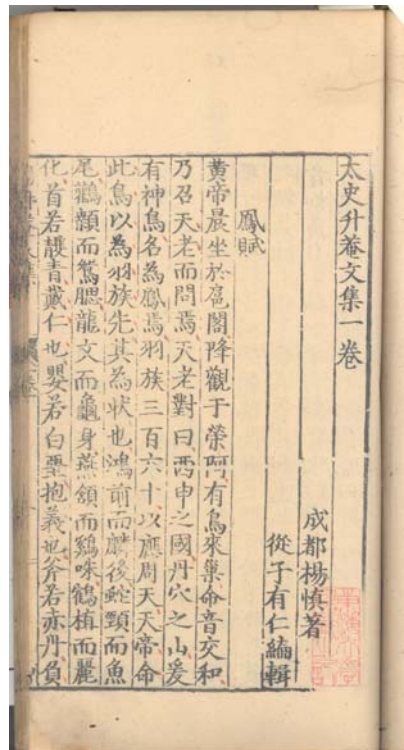 太史升菴文集一卷
成都楊慎著
從子有仁編輯
鳳賦
黄帝晨坐於扈閣降觀于榮阿有鳥來巢命音交和
乃召天老而問焉天老對曰西申之國丹穴之山爰
有神鳥名為鳳焉羽族三百六十以應周天天帝命
此鳥以為羽族先其為狀也鴻前而麟後蛇頸而魚
尾鸛顙而鴛腮龍文而龜身燕頷而鷄咮鶴植而麗
化首若䕶青戴仁也嬰若白堊抱義也斧若亦丹負